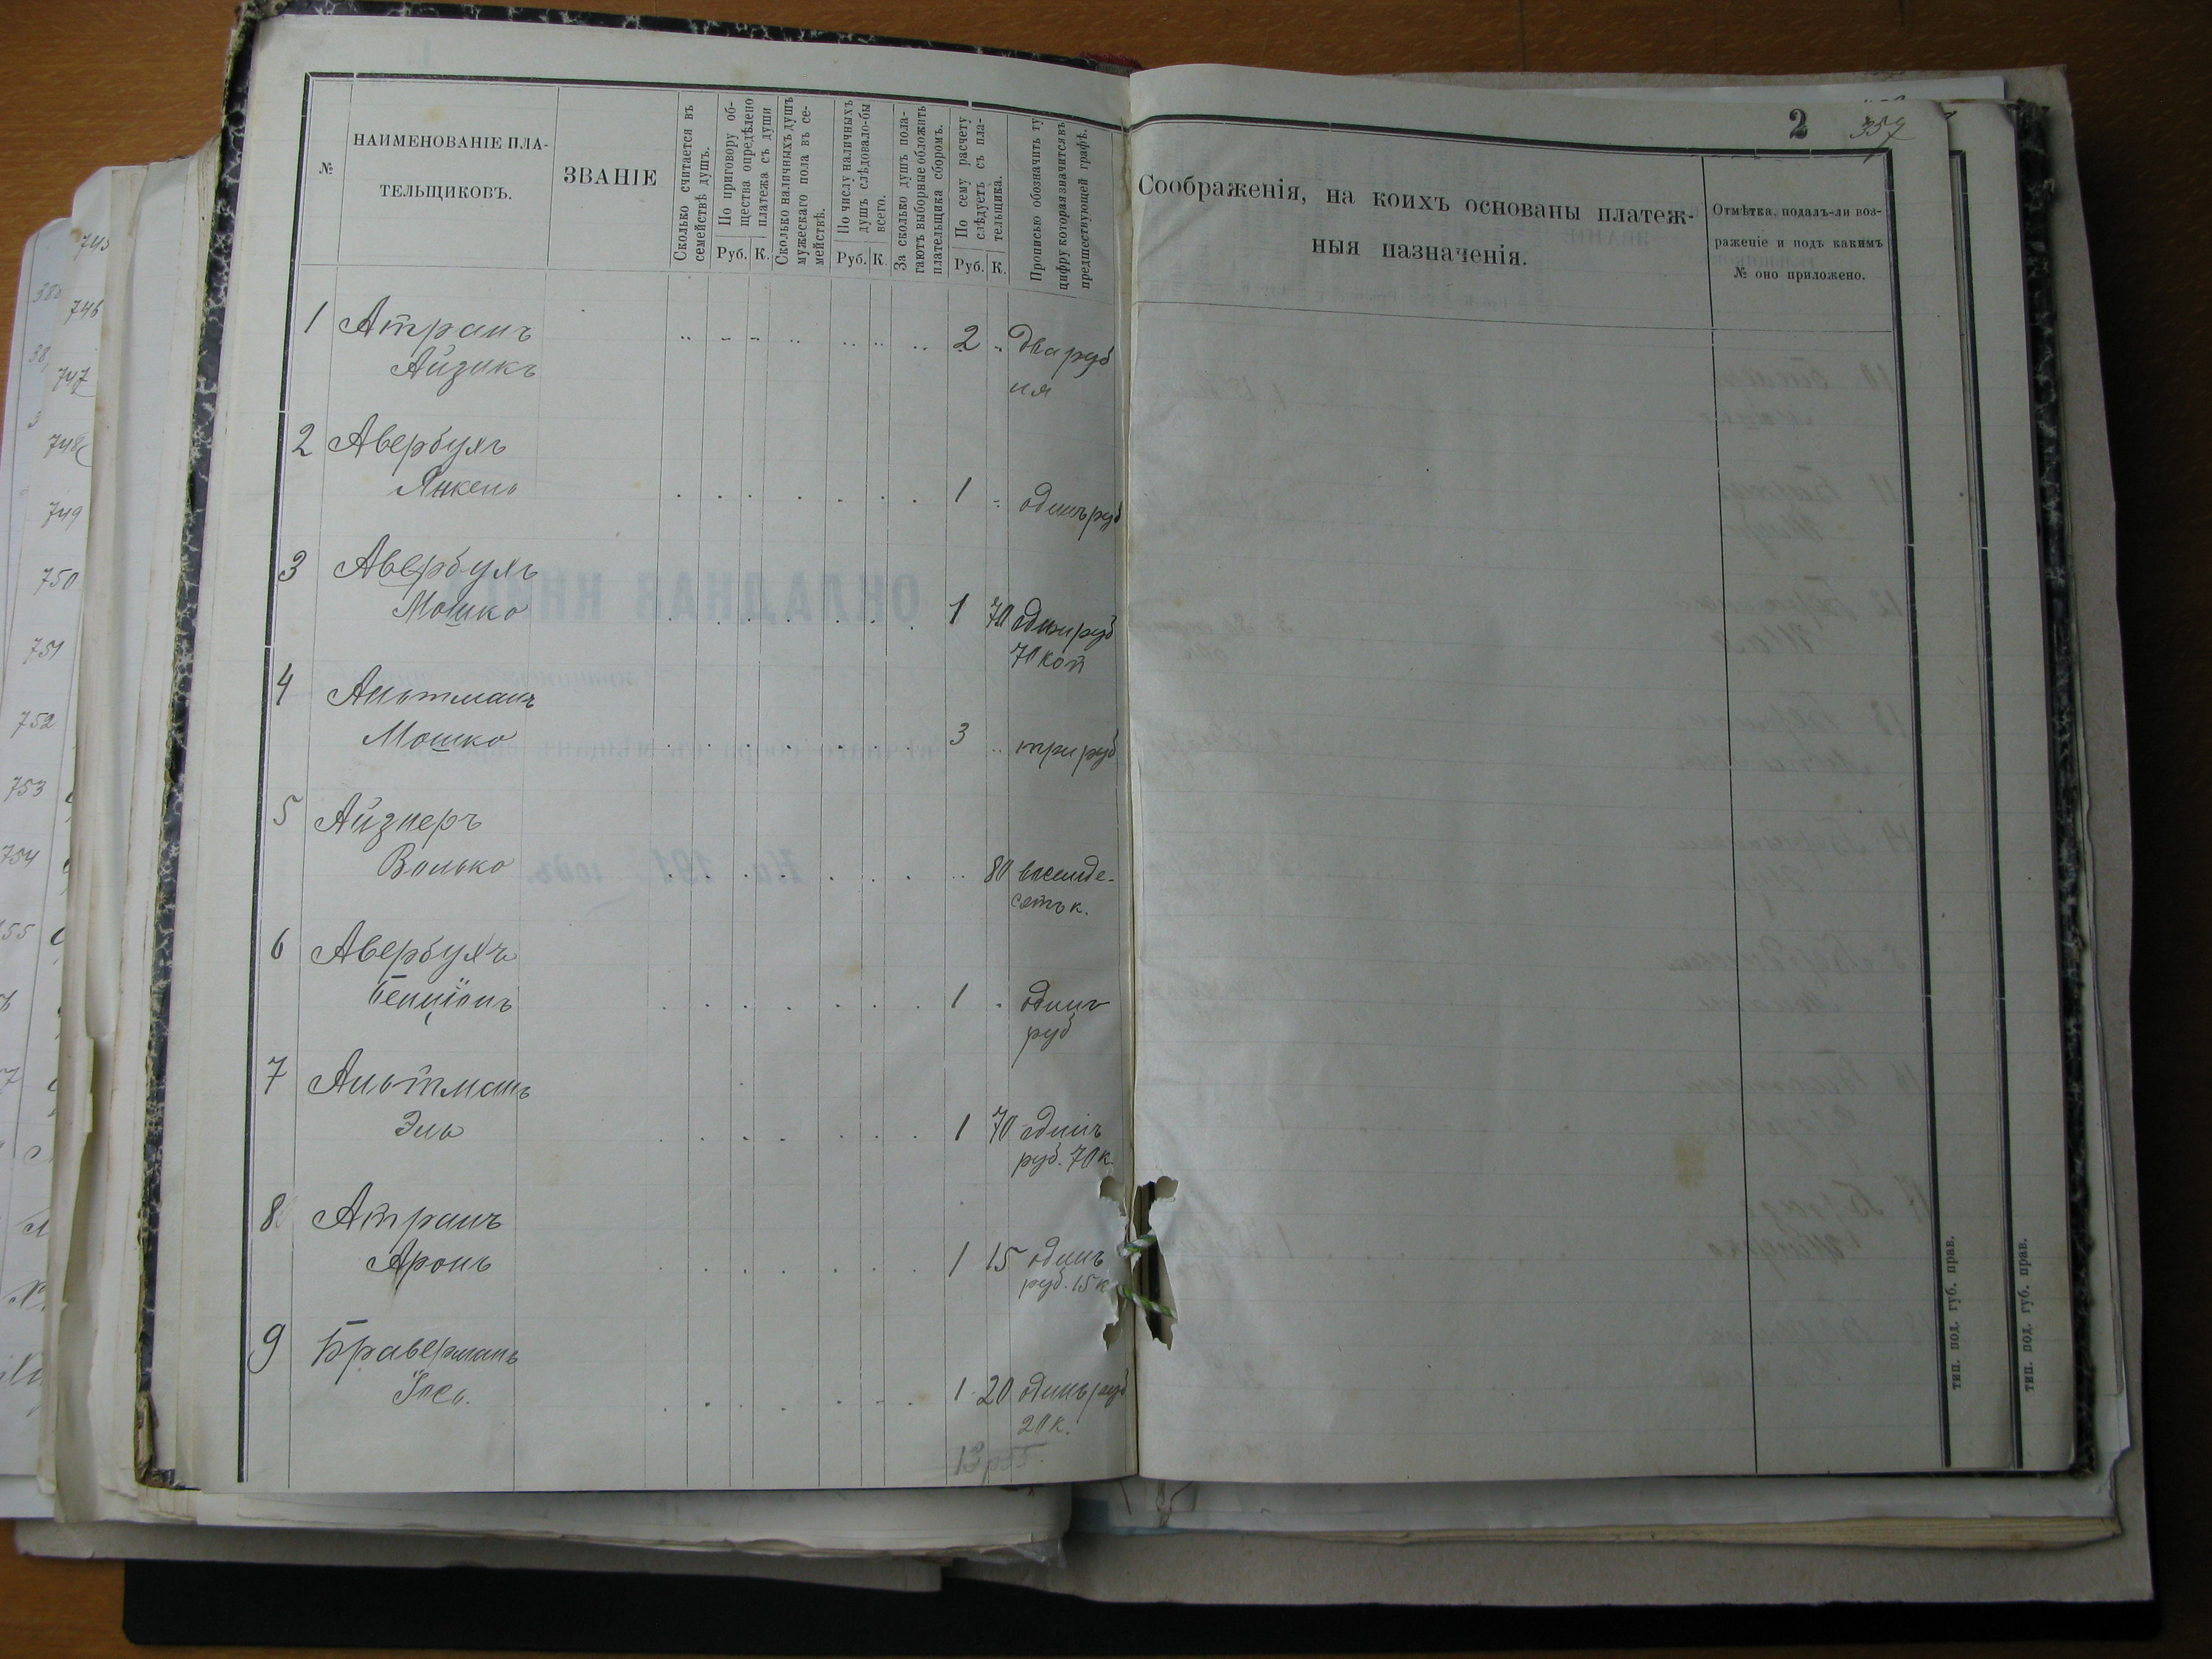 №
НАИМЕНОВАНІЕ ПЛА-
ТЕЛЬЩИКОВЪ.
ЗВАНІЕ
Сколько считается въ
семействѣ душъ.
По приговору об-
щества опредѣлено
платежа съ души
Руб. К.
Сколько наличныхъ душъ
мужескаго пола въ се-
мействѣ.
По числу наличныхъ
душъ слѣдовало-бы
всего.
Руб. К.
За сколько душъ пола-
гаютъ выборные обложить
плательщика сборомъ.
По сему расчету
слѣдуетъ съ пла-
тельщика.
Руб. К.
Прописью обозначить ту
цифру которая значится въ
предшествующей графѣ.
1 Атранъ
Айзикъ 2 два руб
ля
2 Авербухъ
Янкель 1 одинъ руб
3 Авербухъ
Мошко 1 70 одинъ руб
70 коп
4 Альтманъ
Мошко 3 три руб
5 Айзнеръ
Волько 80 восемде-
сятъ к.
6 Авербухъ
Бенціонъ 1 одинъ
руб
7 Альтманъ
Эль 1 70 одинъ
руб. 70 к.
8 Атранъ
Аронъ 1 15 одинъ
руб. 15 к
9 Браверманъ
Іосъ. 1 20 одинъ руб
20 к.
2 357
Соображенія, на коихъ основаны платеж-
ныя назначенія.
Отмѣтка, подалъ-ли воз-
раженіе и подъ какимъ
№ оно приложено.
тип. под. губ. прав.
тип. под. губ. прав.
745
746
747
748
749
750
751
752
753
754